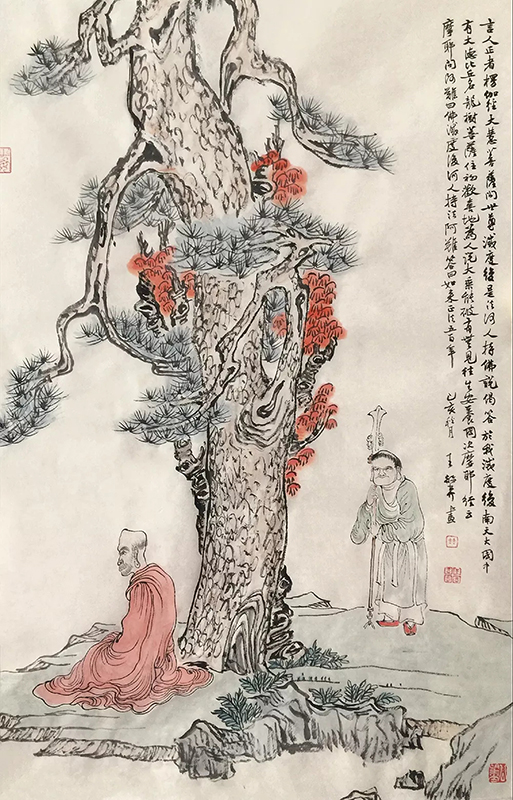 言人正者楞伽经大慧菩萨问世尊滅度後是法何人持佛說偈答於我滅度後南天大國中
有大德比丘名龍樹菩薩住初歡喜地為人說大乘能破有無見往生安養國次摩耶經云
摩耶問阿難曰佛滅度後何人持法阿難答曰如來正法五百年
乙亥秋月